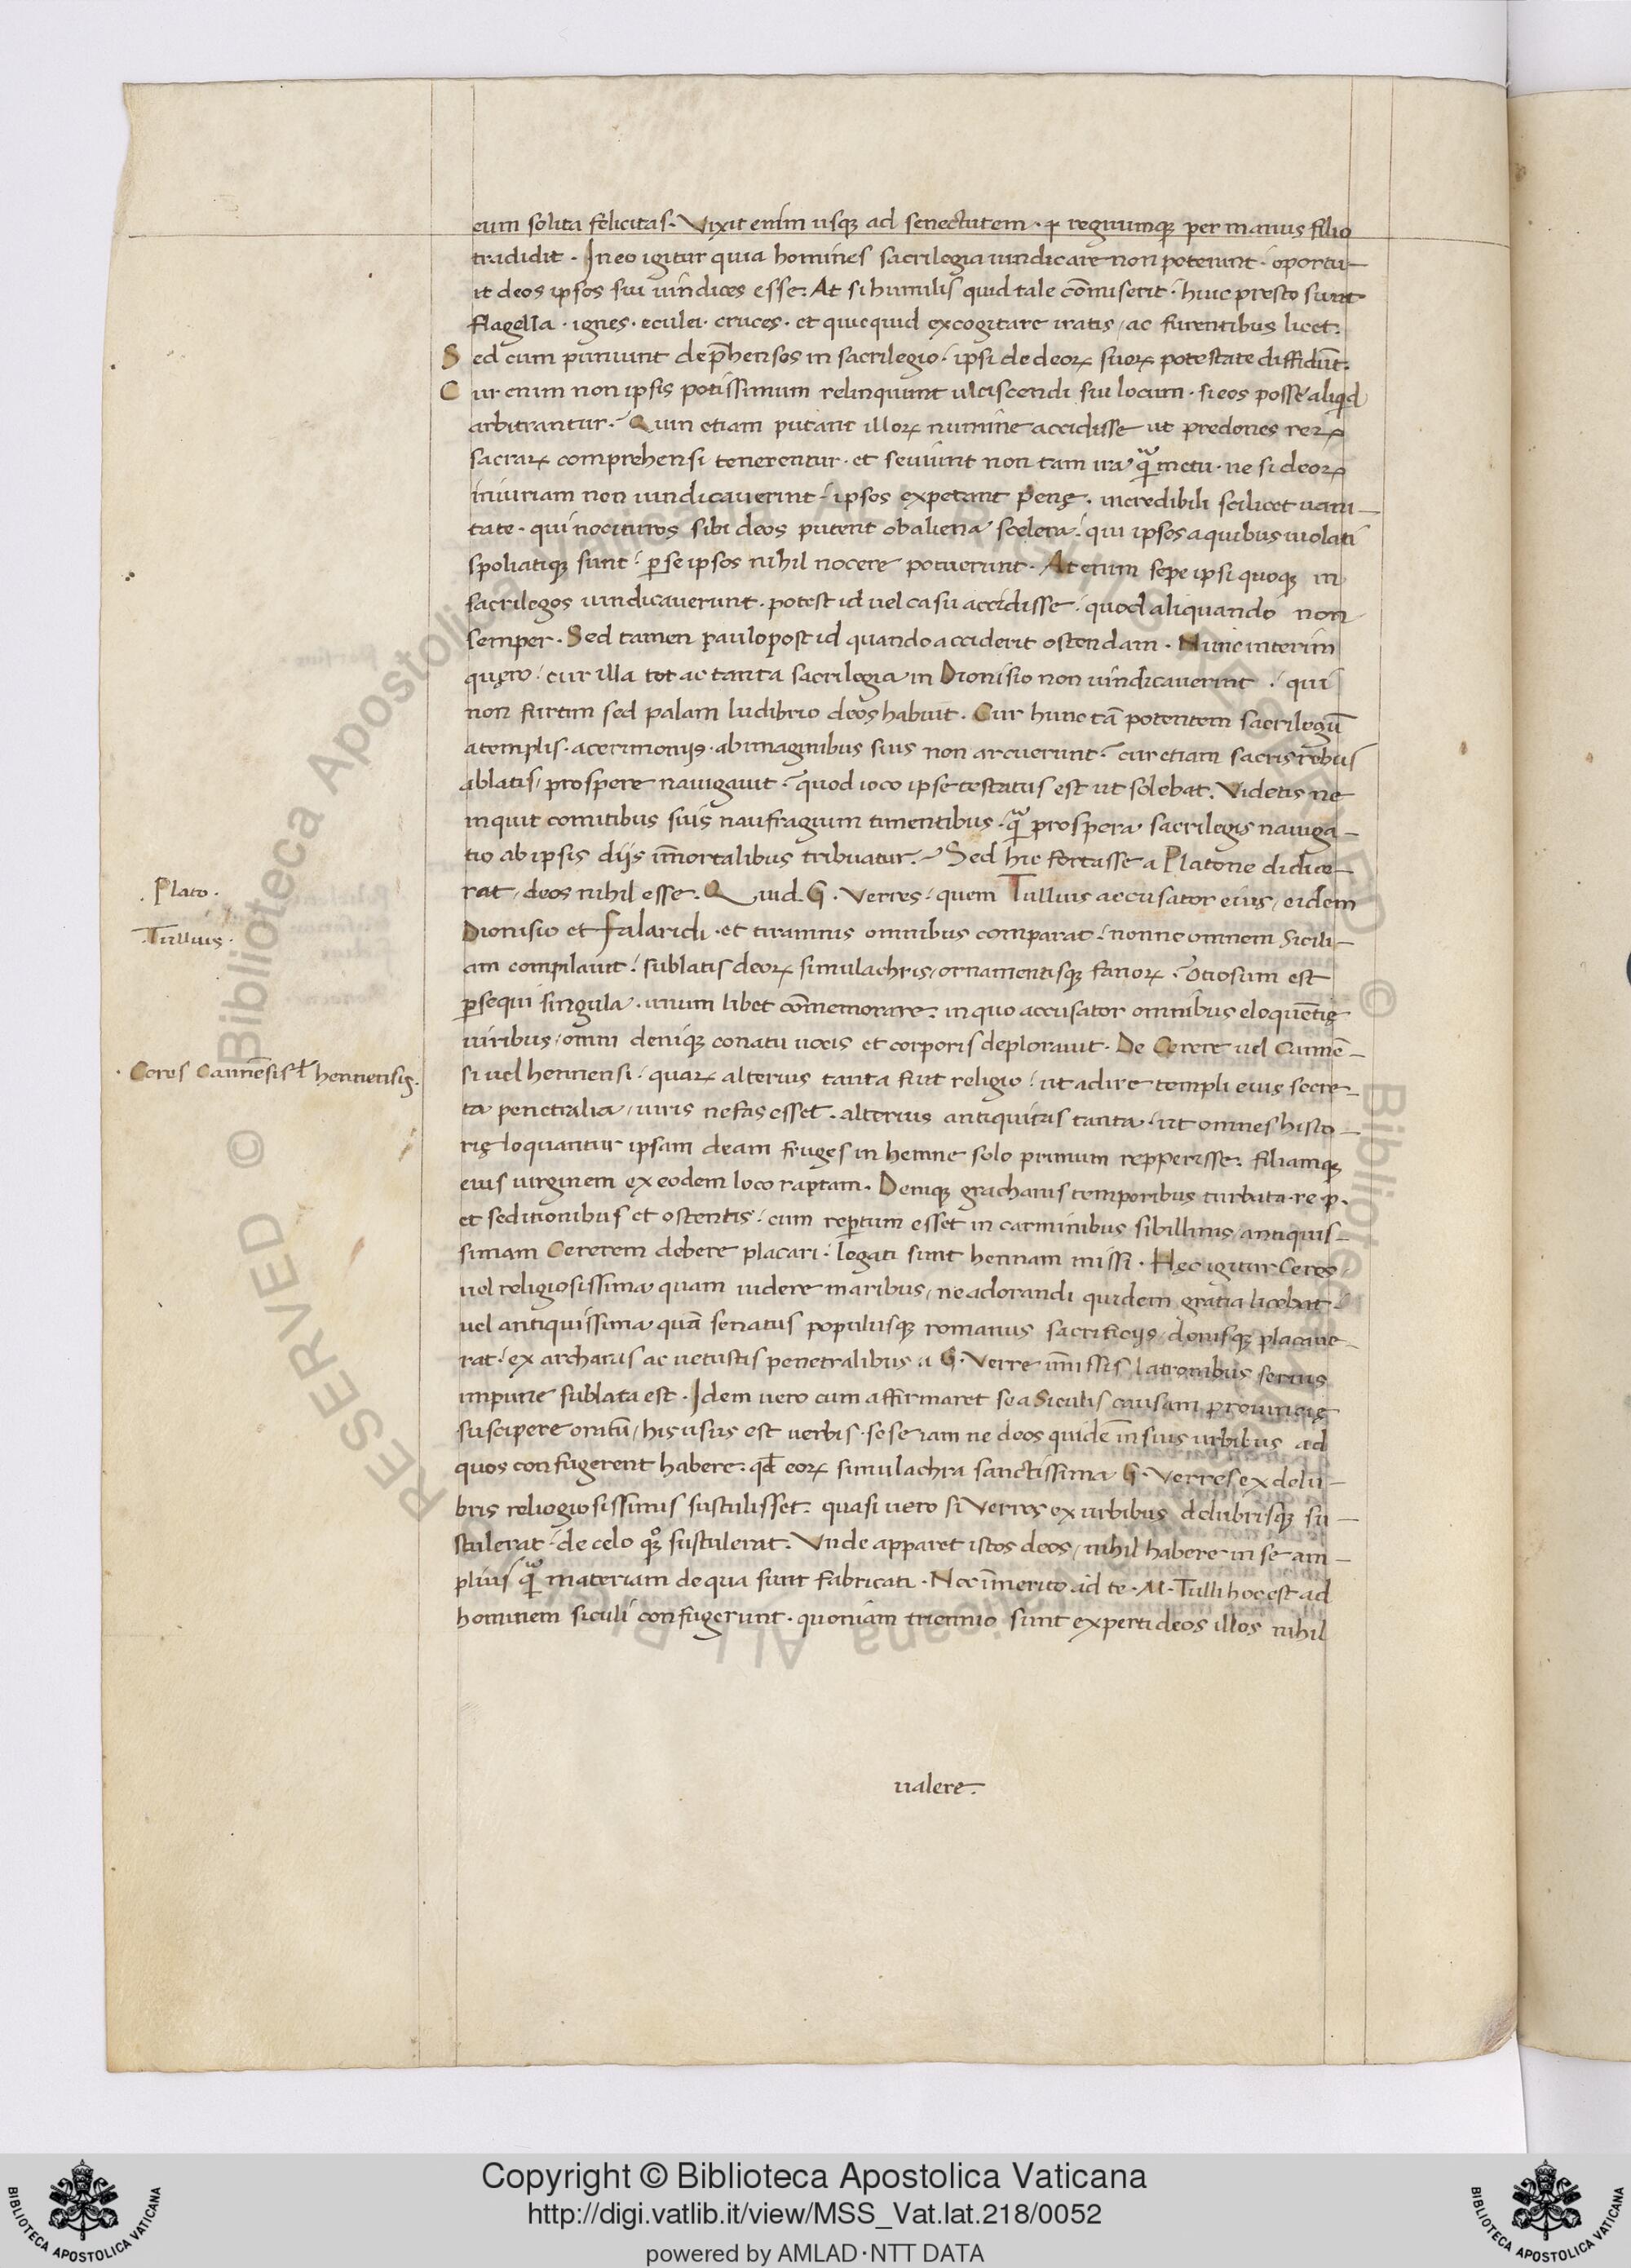 eum solita felicitas. Vixit enim usqꝫ ad senectutem · ꝙ regnumqꝫ per manus filio
tradidit · In eo igitur quia homines sacrilegia uindicare non poterant · oportu-
it deos ipsos sui uindices esse. At si humilis quid tale cōmiserit · huic presto sunt
flagella · ignes · eculei · cruces · et quicquid excogitare iratis / ac furentibus licet.
Sed cum puniunt dep̄hensos in sacrilegio · ipsi de deoꝝ suoꝝ potestate diffidūt.
Cur enim non ipsis potissimum relinquunt ulciscendi sui locum · si eos posse aliqd
arbitrantur. Quin etiam putant illoꝝ numine accidisse ut predones reꝝ
sacraꝝ comprehensi tenerentur · et seuiunt non tam ira qͣm metu · ne si deoꝝ
iniuriam non uindicauerint · ipsos expetant penę · incredibili scilicet uani-
tate · qui nocituros sibi deos putent ob aliena scelera · qui ipsos a quibus uiolati
spoliatiqꝫ sunt · ꝑ se ipsos nihil nocere potuerunt · At enim sepe ipsi quoqꝫ in
sacrilegos uindicauerunt · potest id uel casu accidisse · quod aliquando non
semper · Sed tamen paulo post id quando acciderit ostendam · Nunc interim
quęro · cur illa tot ac tanta sacrilegia in Dionisio non uindicauerint · qui
non furtim sed palam ludibrio deos habuit · Cur hunc tā potentem sacrilegū
a templis · a cerimoniis · ab imaginibus suis non arcuerunt · cur etiam sacris rebus
ablatis / prospere nauigauit · quod ioco ipse testatus est ut solebat. Videtis ne
inquit comitibus suis naufragium timentibus · qͣm prospera sacrilegis nauiga-
tio ab ipsis diis īmortalibus tribuatur. Sed hic fortasse a Platone didice-
rat / deos nihil esse. Quid. G. Verres · quem Tullius accusator eius / eidem
Dionisio et Falaridi · et tirannis omnibus comparat · nonne omnem Sicili-
am compilauit · sublatis deoꝝ simulachris / ornamentisqꝫ fanoꝝ. Otiosum est
ꝑsequi singula · unum libet cōmemorare · in quo accusator omnibus eloquētię
uiribus / omni deniqꝫ conatu uocis et corporis deplorauit. De Cerere uel Catinē-
si uel hennensi · quaꝝ alterius tanta fuit religio · ut adire templi eius secre-
ta penetralia / uiris nefas esset · alterius antiquitas tanta · ut omnes histo-
rię loquantur ipsam deam fruges in henne solo primum repperisse · filiamqꝫ
eius uirginem ex eodem loco raptam. Deniqꝫ grachanis temporibus turbata · re · p.
et seditionibus et ostentis · cum reꝑtum esset in carminibus sibillinis / antiquis-
simam Cererem debere placari · legati sunt hennam missi · Hęc igitur Ceres /
uel religiosissima quam uidere maribus / ne adorandi quidem gratia licebat ·
uel antiquissima quā senatus populusqꝫ romanus sacrificiis / donisqꝫ placaue-
rat · ex archanis ac uetustis penetralibus a G. Verre īmissis latronibus seruis
impune sublata est · Idem uero cum affirmaret se a Siculis causam prouincię
suscipere oratū / his usus est uerbis · sese iam ne deos quidē in suis urbibus ad
quos confugerent habere · qd eoꝝ simulachra sanctissima G. Verres ex delu-
bris religiosissimis sustulisset · quasi uero si Verres ex urbibus delubrisqꝫ su-
stulerat · de celo qͦꝫ sustulerat. Vnde apparet istos deos / nihil habere in se am-
plius qͣm materiam de qua sunt fabricati · Nec īmerito ad te · M · Tulli hoc est ad
hominem siculi confugerunt · quoniam triennio sunt experti deos illos nihil
ualere.
· Plato ·
· Tullius ·
· Ceres Catinēsis ł hennensis ·
Copyright © Biblioteca Apostolica Vaticana
http://digi.vatlib.it/view/MSS_Vat.lat.218/0052
powered by AMLAD·NTT DATA
BIBLIOTECA APOSTOLICA VATICANA
BIBLIOTECA APOSTOLICA VATICANA